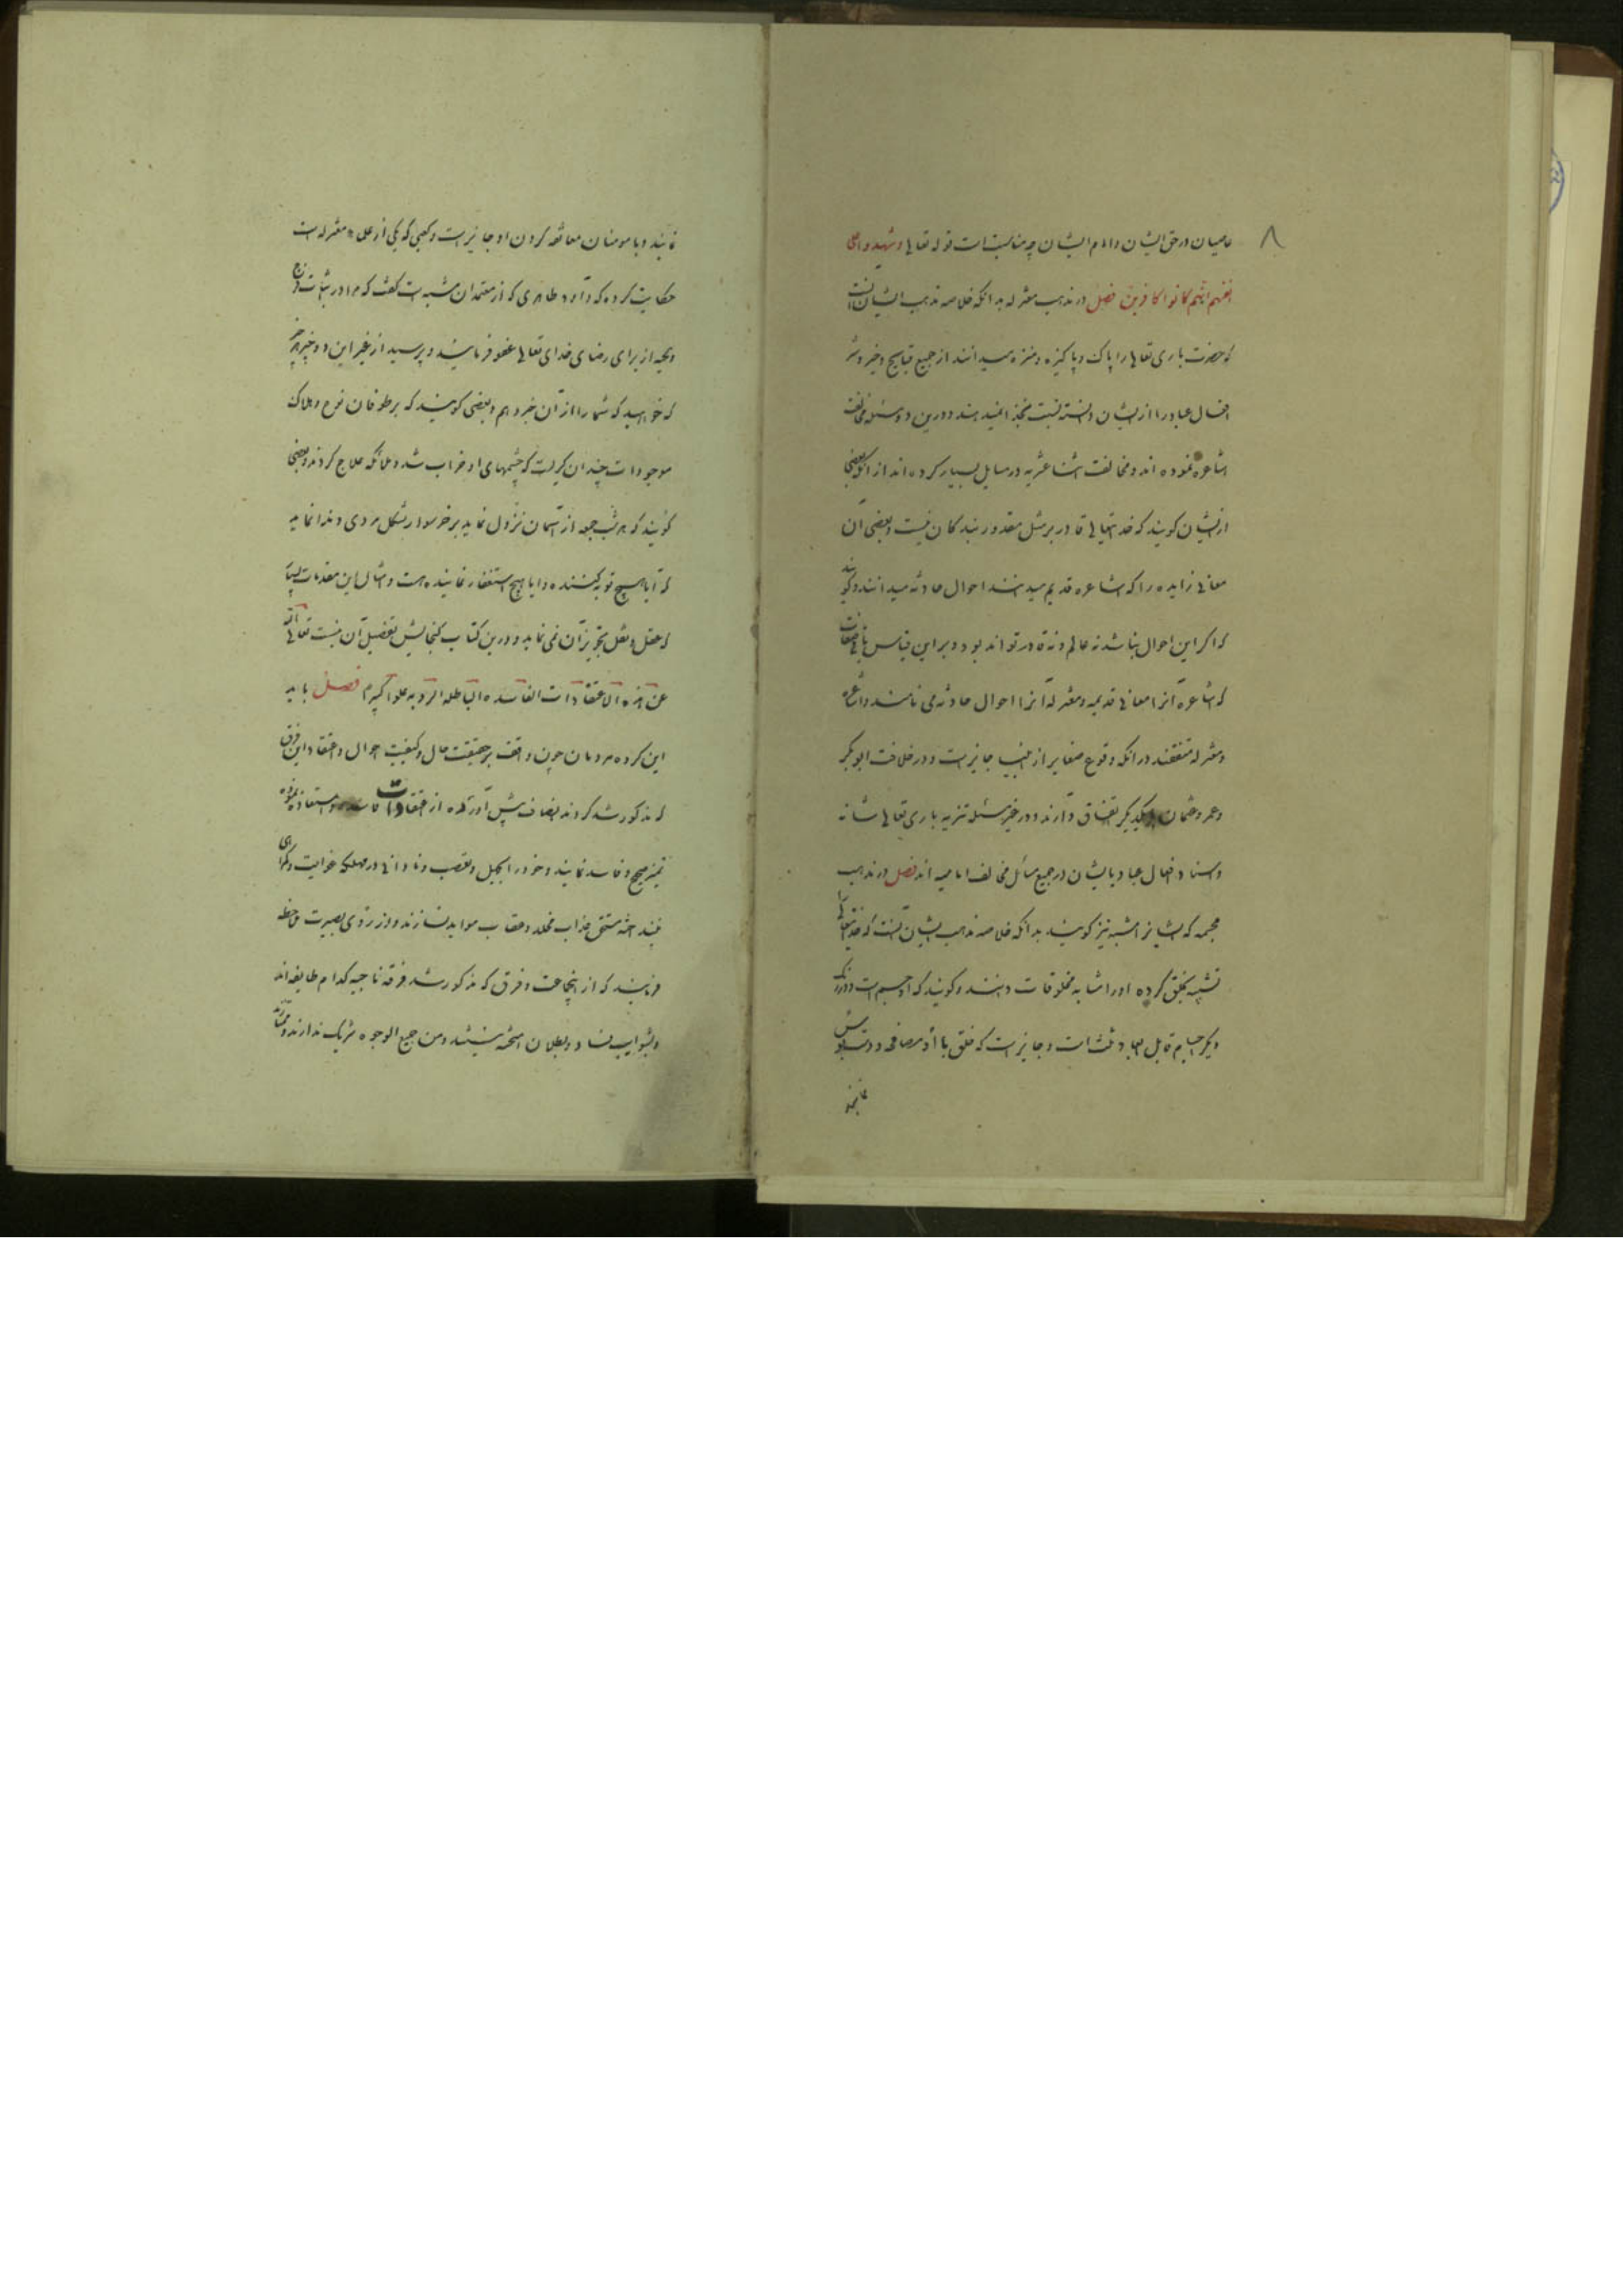 ۸
عاصیان در حق ایشان و امام ایشان چه مناسبت است قوله تعالی و شهدوا علی
انفسهم انهم کانوا کافرین فصل در مذهب معتزله بدانکه خلاصه مذهب ایشان آنست
که حضرت باری تعالی را پاک و پاکیزه و منزه میدانند از جمیع قبایح و خیر و شر
افعال عباد را از ایشان دانسته نسبت بخدا نمیدهند و درین دو مسئله مخالفت
اشاعره نموده اند و مخالفت اثنا عشریه در مسایل بسیار کرده اند از آنکه بعضی
از ایشان گویند که خدایتعالی قادر بر مثل مقدور بندگان نیست و بعضی آن
معانی زایده را که اشاعره قدیم میدانند احوال حادثه میدانند و گویند
که اگر این احوال نباشد نه عالم و نه قادر تواند بود و بر این قیاس باقی صفات
که اشاعره آنرا معانی قدیمه و معتزله آنرا احوال حادثه می نامند و اشاعره
و معتزله متفقند در آنکه وقوع صغایر از انبیا جایز است و در خلافت ابو بکر
و عمر و عثمان با یکدیگر اتفاق دارند و در غیر مسئله تنزیه باری تعالی شانه
و اسناد افعال عباد بایشان در جمیع مسائل مخالف امامیه اند فصل در مذهب
مجسمه که ایشانرا مشبه نیز گویند بدانکه خلاصه مذهب ایشان آنست که خدایتعالی را
تشبیه بخلق کرده اورا مشابه مخلوقات دانند و گویند که او جسم است و در رنگ
دیگر اجسام قابل ابعاد ثلثه است و جایز است که خلق با او مصافحه و دست بوس
نمایند
نمایند و با مومنان معانقه کردن او جایز است و کعبی که یکی از علماء معتزله است
حکایت کرده که داود ظاهری که از معتمدان مشبه است گفت که مرا در اثبات فرج
و لحیه از برای رضای خدای تعالی عفو فرمائید و بپرسید از غیر این دو چیز هر چیز
که خواهید که شما را از آن خبر دهم و بعضی گویند که بر طوفان نوح و هلاک
موجودات چندان گریست که چشمهای او خراب شد و ملائکه علاج کردند و بعضی
گویند که هر شب جمعه از آسمان نزول نماید بر خر سوار بشکل مردی و ندا نماید
که آیا هیچ توبه کننده و ایا هیچ استغفار نماینده هست و امثال این مقدمات بسیار
که عقل و نقل تجویز آن نمی نماید و درین کتاب گنجایش تفصیل آن نیست تعالی الله
عن هذه الاعتقادات الفاسده الباطله الردیه علوا کبیرا فصل باید
این گروه مردمان چون واقف بر حقیقت حال و کیفیت احوال و اعتقاد این فرق
که مذکور شد گردند انصاف پیش آورده از اعتقادات فاسده استعاذه نموده
تمیز صحیح و فاسد نمایند و خود را بجهل و تعصب و نادانی در مهلکه غوایت و گمراهی
نیندازند مستحق عذاب مخلد و عقاب موابد نسازند و از روی بصیرت ملاحظه
فرمایند که از اینجماعت و فرق که مذکور شد فرقه ناجیه کدام طایفه اند
و بشوایب فساد و بطلان آمیخته نیستند و من جمیع الوجوه شریک ندارند و ممتازند